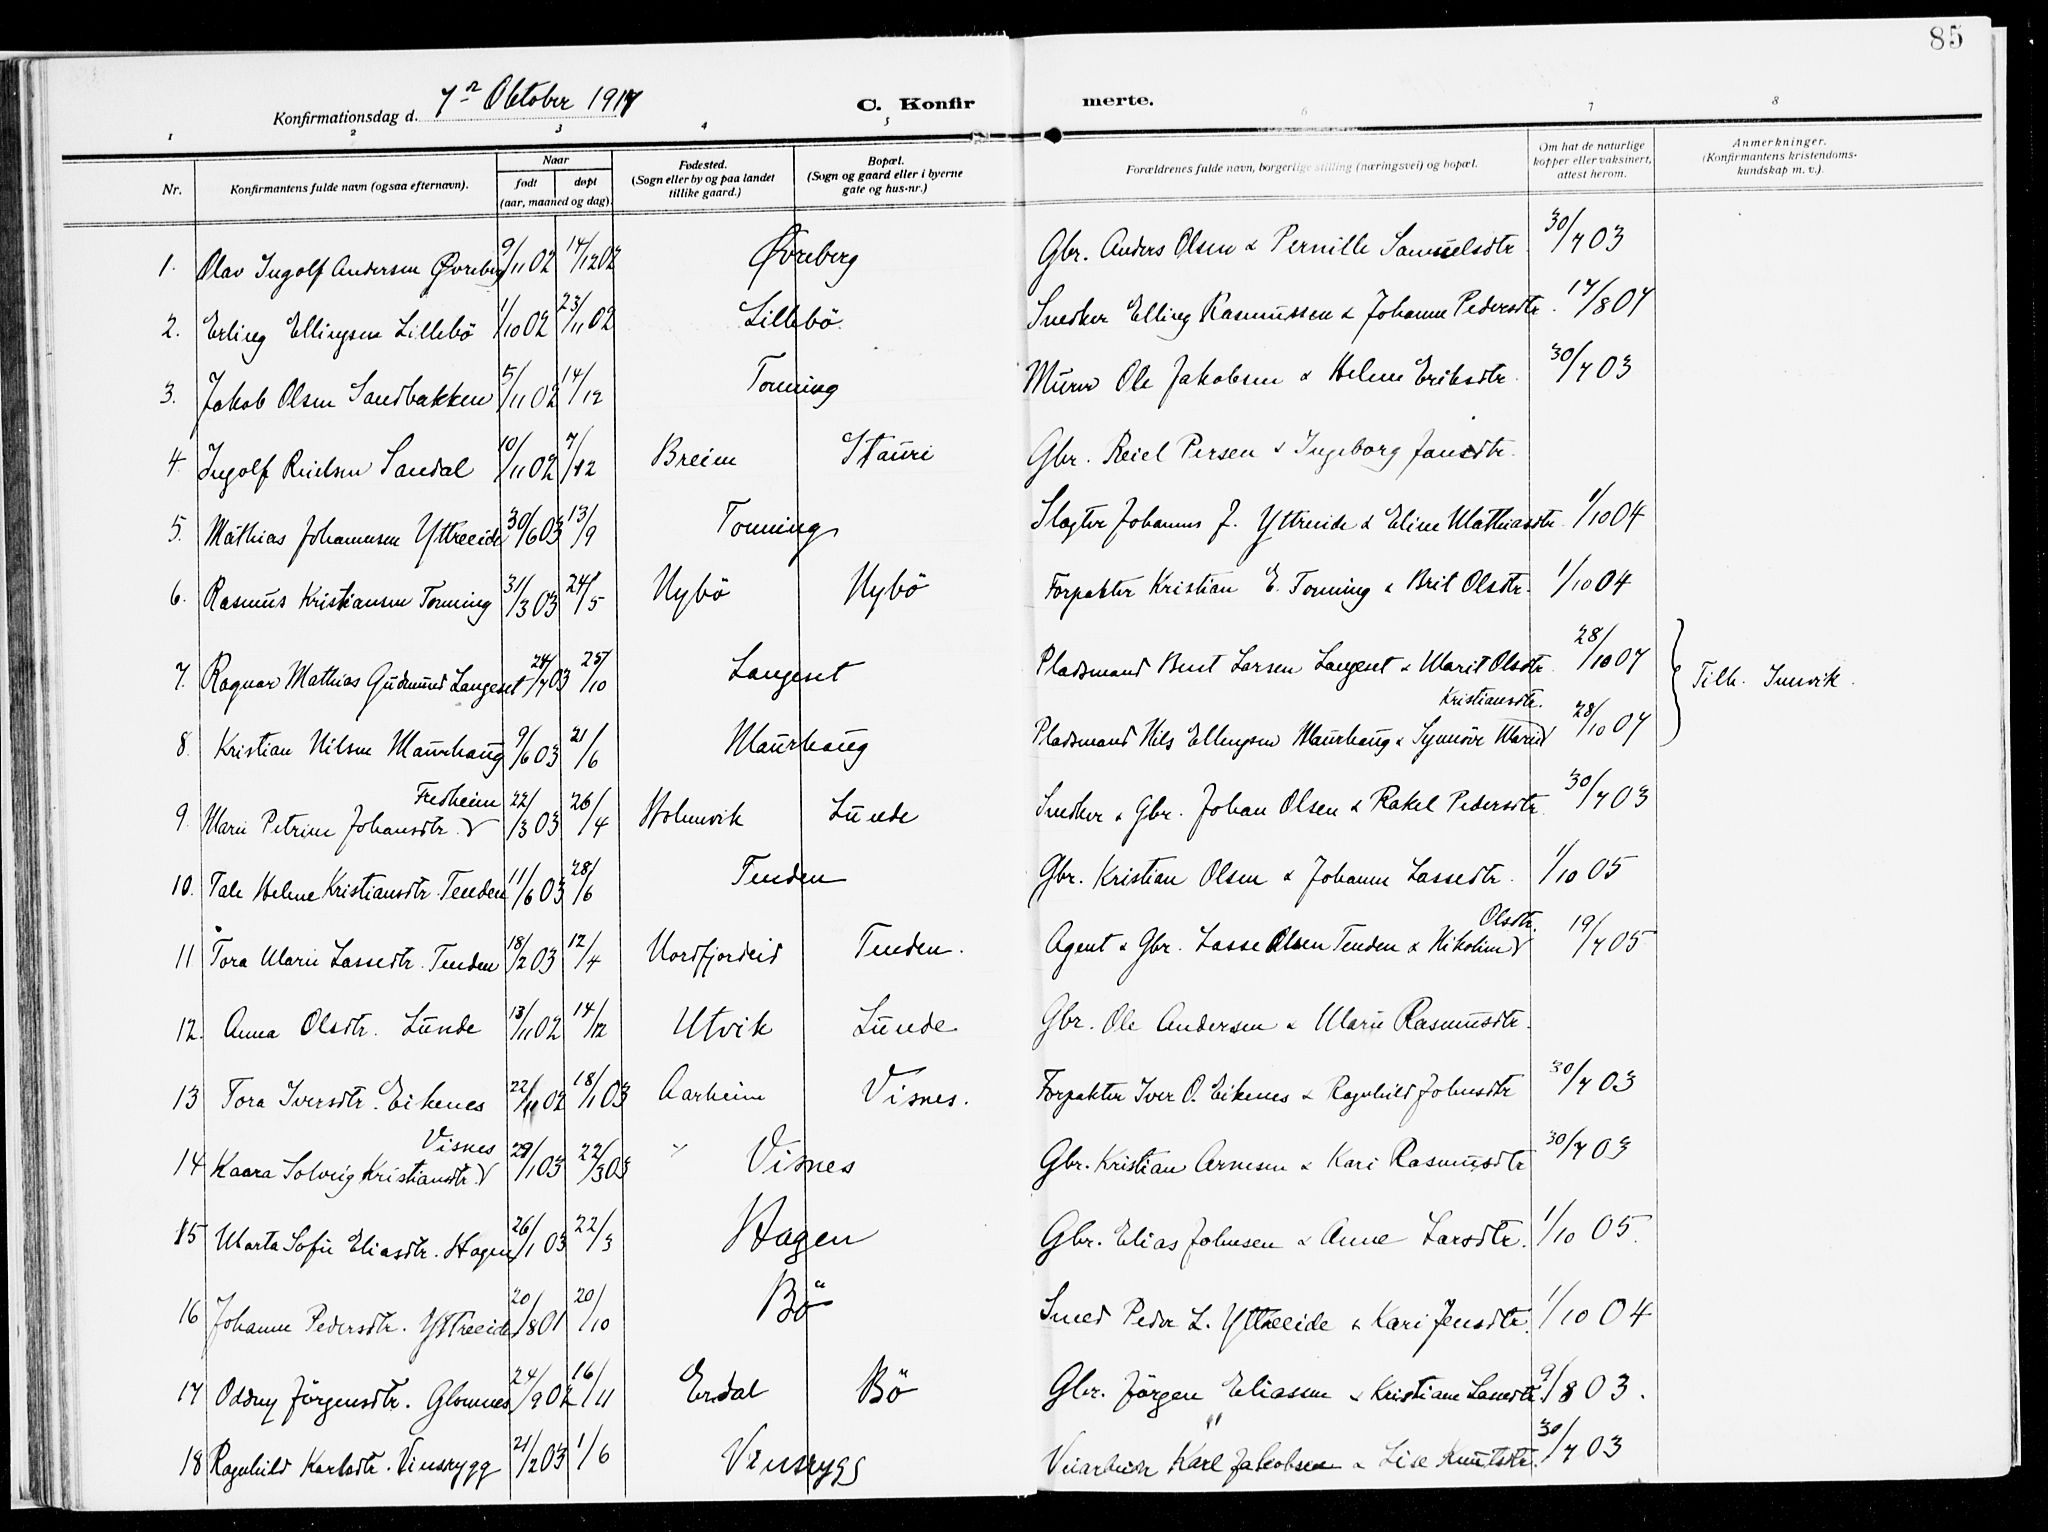 85
Konfirmationsdag d. 7de Oktober 1917 C. Konfirmerte.
1 2 3 4 5 6 7 8
Nr. Konfirmantens fulde navn (ogsaa efternavn). Naar født døpt (aar, maaned og dag). Fødested. (Sogn eller by og paa landet tillike gaard.) Bopæl. (Sogn og gaard eller i byerne gate og hus-nr.) Forældrenes fulde navn, borgerlige stilling (næringsvei) og bopæl. Om hat de naturlige kopper eller vaksinert, attest herom. Anmerkninger. (Konfirmantens kristendoms-kundskap m. v.).
1. Olav Ingolf Andersen Øvreberg 9/11 02 14/12 02 Øvreberg Gbr. Anders Olsen & Pernille Samuelsdtr 30/7 03
2. Erling Ellingsen Lillebö 1/10 02 23/11 02 Lillebö. Snedker Elling Rasmussen & Johanne Pedersdtr. 17/8 07
3. Jakob Olsen Sandbakken 5/11 02 14/12 Tonning Murer Ole Jakobsen & Helene Eriksdtr. 30/7 03
4. Ingolf Reielsen Sandal 10/11 02 7/12 Breim Stauri Gbr. Reiel Persen & Ingeborg Jansdtr.
5. Mathias Johannesen Yttreeide 30/6 03 13/9 Tonning Slagter Johannes J. Yttreeide & Eline Mathiasdtr. 1/10 04
6. Rasmus Kristiansen Tonning 31/3 03 24/5 Nybö Nybö Forpakter Kristian E. Tonning & Brit Olsdtr. 1/10 04
7. Ragnar Mathias Gudmund Langeset 24/7 03 25/10 Langeset Pladsmand Bent Larsen Langeset & Marit Olsdtr. 28/10 07 } Tilh. Innvik.
8. Kristian Nilsen Maurhaug 9/6 03 21/6 Maurhaug Pladsmand Nils Ellingsen Maurhaug & Synnöve Marie Kristiansdtr. 28/10 07
9. Marie Petrine Johansdtr. Fredheim 22/3 03 26/4 Holmvik Lunde Snedker & Gbr. Johan Olsen & Rakel Pedersdtr. 30/7 03
10. Tale Helene Kristiansdtr. Tenden 11/6 03 28/6 Tenden Gbr. Kristian Olsen & Johanne Lassedtr. 1/10 05
11 Tora Marie Lassedtr. Tenden 18/2 03 12/4 Nordfjordeid Tenden. Agent & Gbr. Lasse Olsen Tenden & Nikoline Olsdtr. 19/7 05
12. Anna Olsdtr. Lunde 13/11 02 14/12 Utvik Lunde Gbr. Ole Andersen & Marie Rasmusdtr.
13 Tora Iversdtr. Eikenes 22/11 02 18/1 03 Aarheim Visnes. Forpakter Iver O. Eikenes & Ragnhild Johnsdtr 30/7 03
14 Kaara Solveig Kristiansdtr. Visnes 29/1 03 22/3 03 " Visnes Gbr. Kristian Arnesen & Kari Rasmusdtr 30/7 03
15 Marta Sofie Eliasdtr. Hagen 26/1 03 22/3 Hagen Gbr. Elias Johnsen & Anne Larsdtr. 1/10 05.
16 Johanne Pedersdtr. Yttreeide 20/8 01 20/10 Bö Smed Peder L. Yttreeide & Kari Jensdtr. 1/10 04
17 Oddny Jörgensdtr. Glomnes 24/9 02 16/11 Erdal Bö Gbr. Jörgen Eliassen & Kristiane Larsdtr. 9/8 03.
18 Ragnhild Karlsdtr. Vinsrygg 21/2 03 1/6 Vinsrygg Veiarbeider Karl Jakobsen & Lise Knutsdtr. 30/7 03